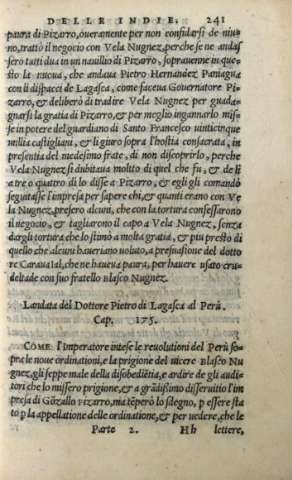 DELLE INDIE. 241
paura di Pizarro, oueramente per non confidarsi de niu-
no, trattò il negocio con Vela Nugnez, perche se ne andas
sero tutti dua in un nauilio di Pizarro, sopravenne in que-
sto la nuoua, che andaua Pietro Hernandez Paniagua
con li dispacci de Lagasca, come faceua Gouernatore Pi-
zarro, & deliberò di tradire Vela Nugnez per guada-
gnarsi la gratia di Pizarro, & per meglio ingannarlo mis-
se in potere del guardiano di Santo Francesco uinticinque
millia castigliani, & li giuro sopra l'hostia consacrata, in
presentia del medesimo frate, di non discoprirlo, perche
Vela Nugnez si dubitaua molto di quel che fu, & de lì
a tre o quatro dì lo disse a Pizarro, & egli gli comandò
seguitasse l'impresa per sapere chi, & quanti erano con Ve
la Nugnez, preserò alcuni, che con la tortura confessarono
il negocio, & tagliarono il capo a Vela Nugnez, senza
dargli tortura che lo stimò a molta gratia, & piu presto di
quello che alcuni haueriano uoluto, a persuasione del dotto
re Carauaial, che ne haueua paura, per hauere usato cru-
deltade con suo fratello Blasco Nugnez.
Landata del Dottore Pietro di Lagasca al Perù.
Cap. 175.
COME l'imperatore intese le reuolutioni del Perù so-
pra le noue ordinationi, e la prigione del uicere Blasco Nu
gnez, gli seppe male della disobediētia, e ardire de gli audi-
tori che lo missero prigione, & a grādissimo disseruitio l'im
presa di Gōzallo Pizarro, ma tēperò lo sdegno, p essere sta
to p la appellatione delle ordinatione, & per uedere, che le
Parte 2. Hh lettere,